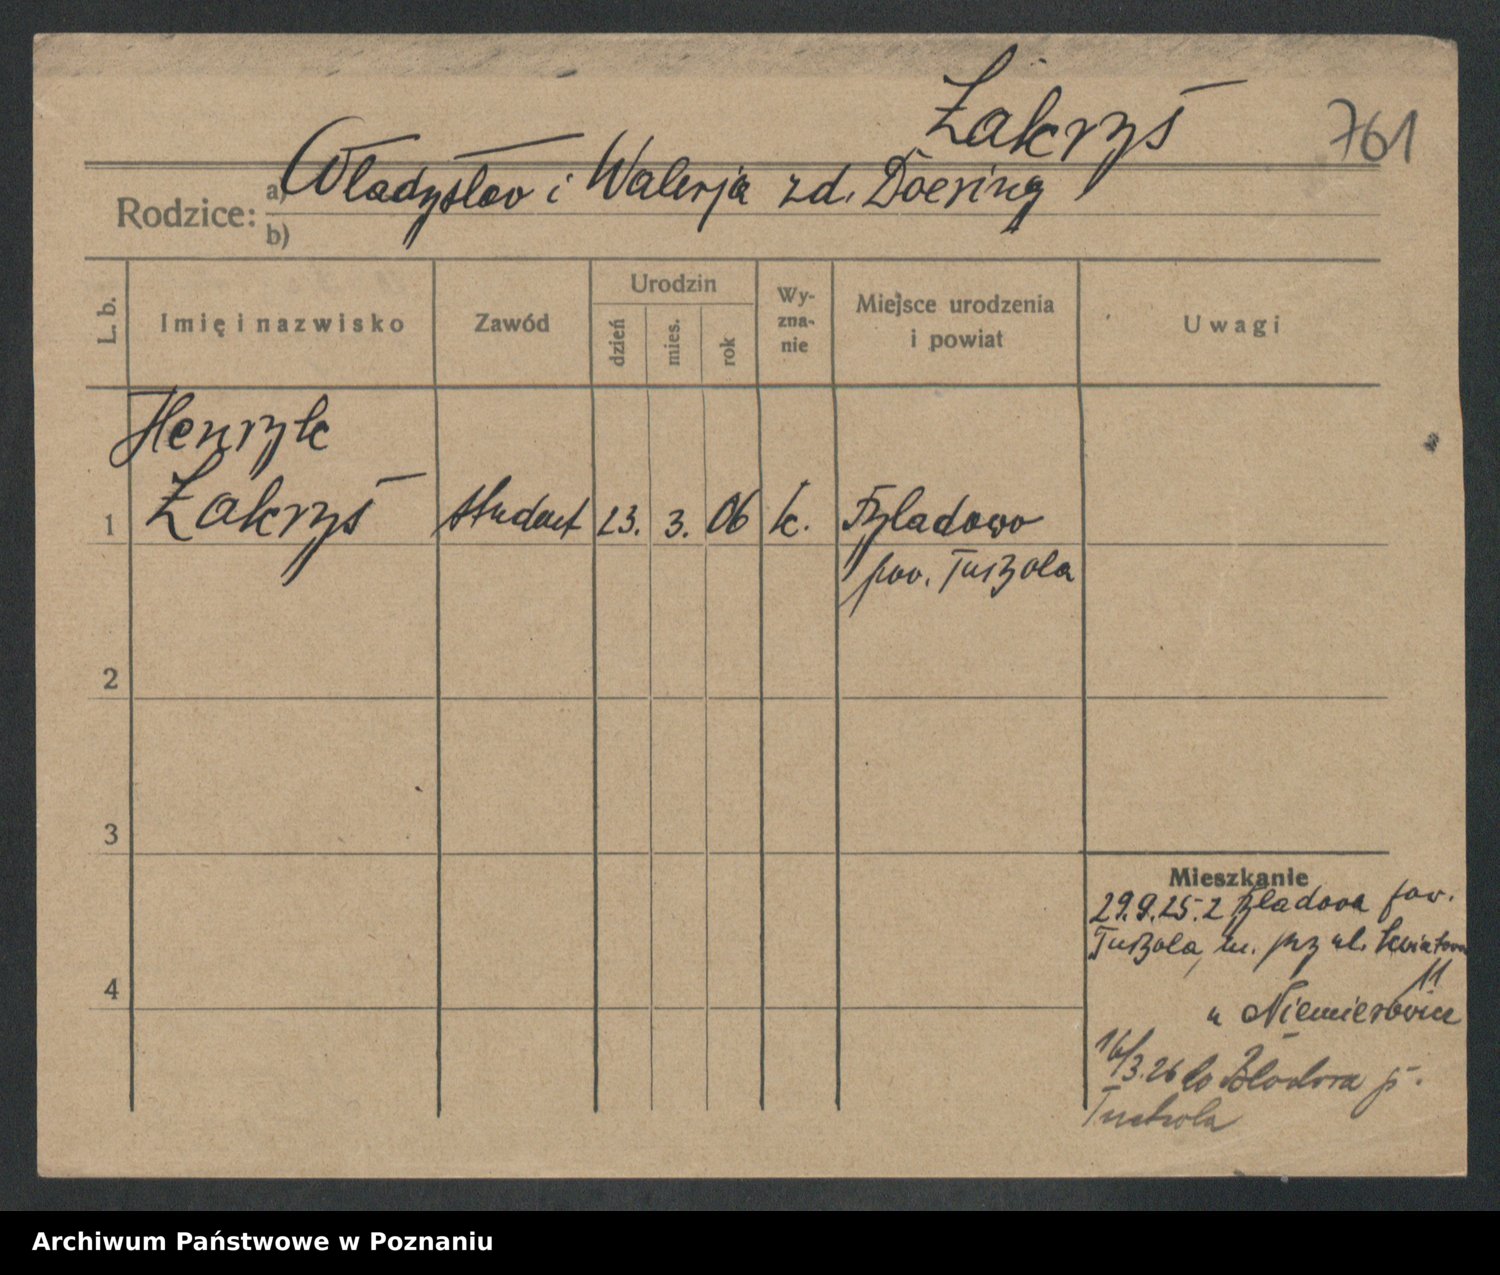 Zakryś
761
Rodzice: a) Władysław i Walerja zd. Doering
b)
L. b.
Imię i nazwisko
Zawód
Urodzin
dzień
mies.
rok
Wy-
zna-
nie
Miejsce urodzenia
i powiat
Uwagi
Henryk
1 Zakryś student 23. 3. 06 k.
pow. Tuchola
2
3
4
Mieszkanie
29.9.25. z pow.
Tuchola, m. przy ul. Kwiatowa
11
u Niemierowicz
16/3.26 do p.
Tuchola
Archiwum Państwowe w Poznaniu